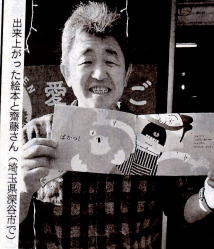 出来上がった絵本と齋藤さん（埼玉県深谷市で）
愛
ご
ぱかっ！